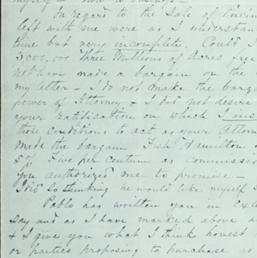 In regard to the Sale of
left with me were as I understan
time but very incomplete. Could I
3,000,000 three Millions of Acres free
not have made a bargain on the
my letter - I do not make the barga
power of Attorney & I did not desire
your ratification on which I ins
those conditions to act as your Attorne
made the bargain Hamilton
5% Five per centum as commissio
you authorized me to promise -
So thinking he would like myself
Pablo has written you in
say and as I have marked above a
& I give you what I think honest
or parties proposing to purchase as